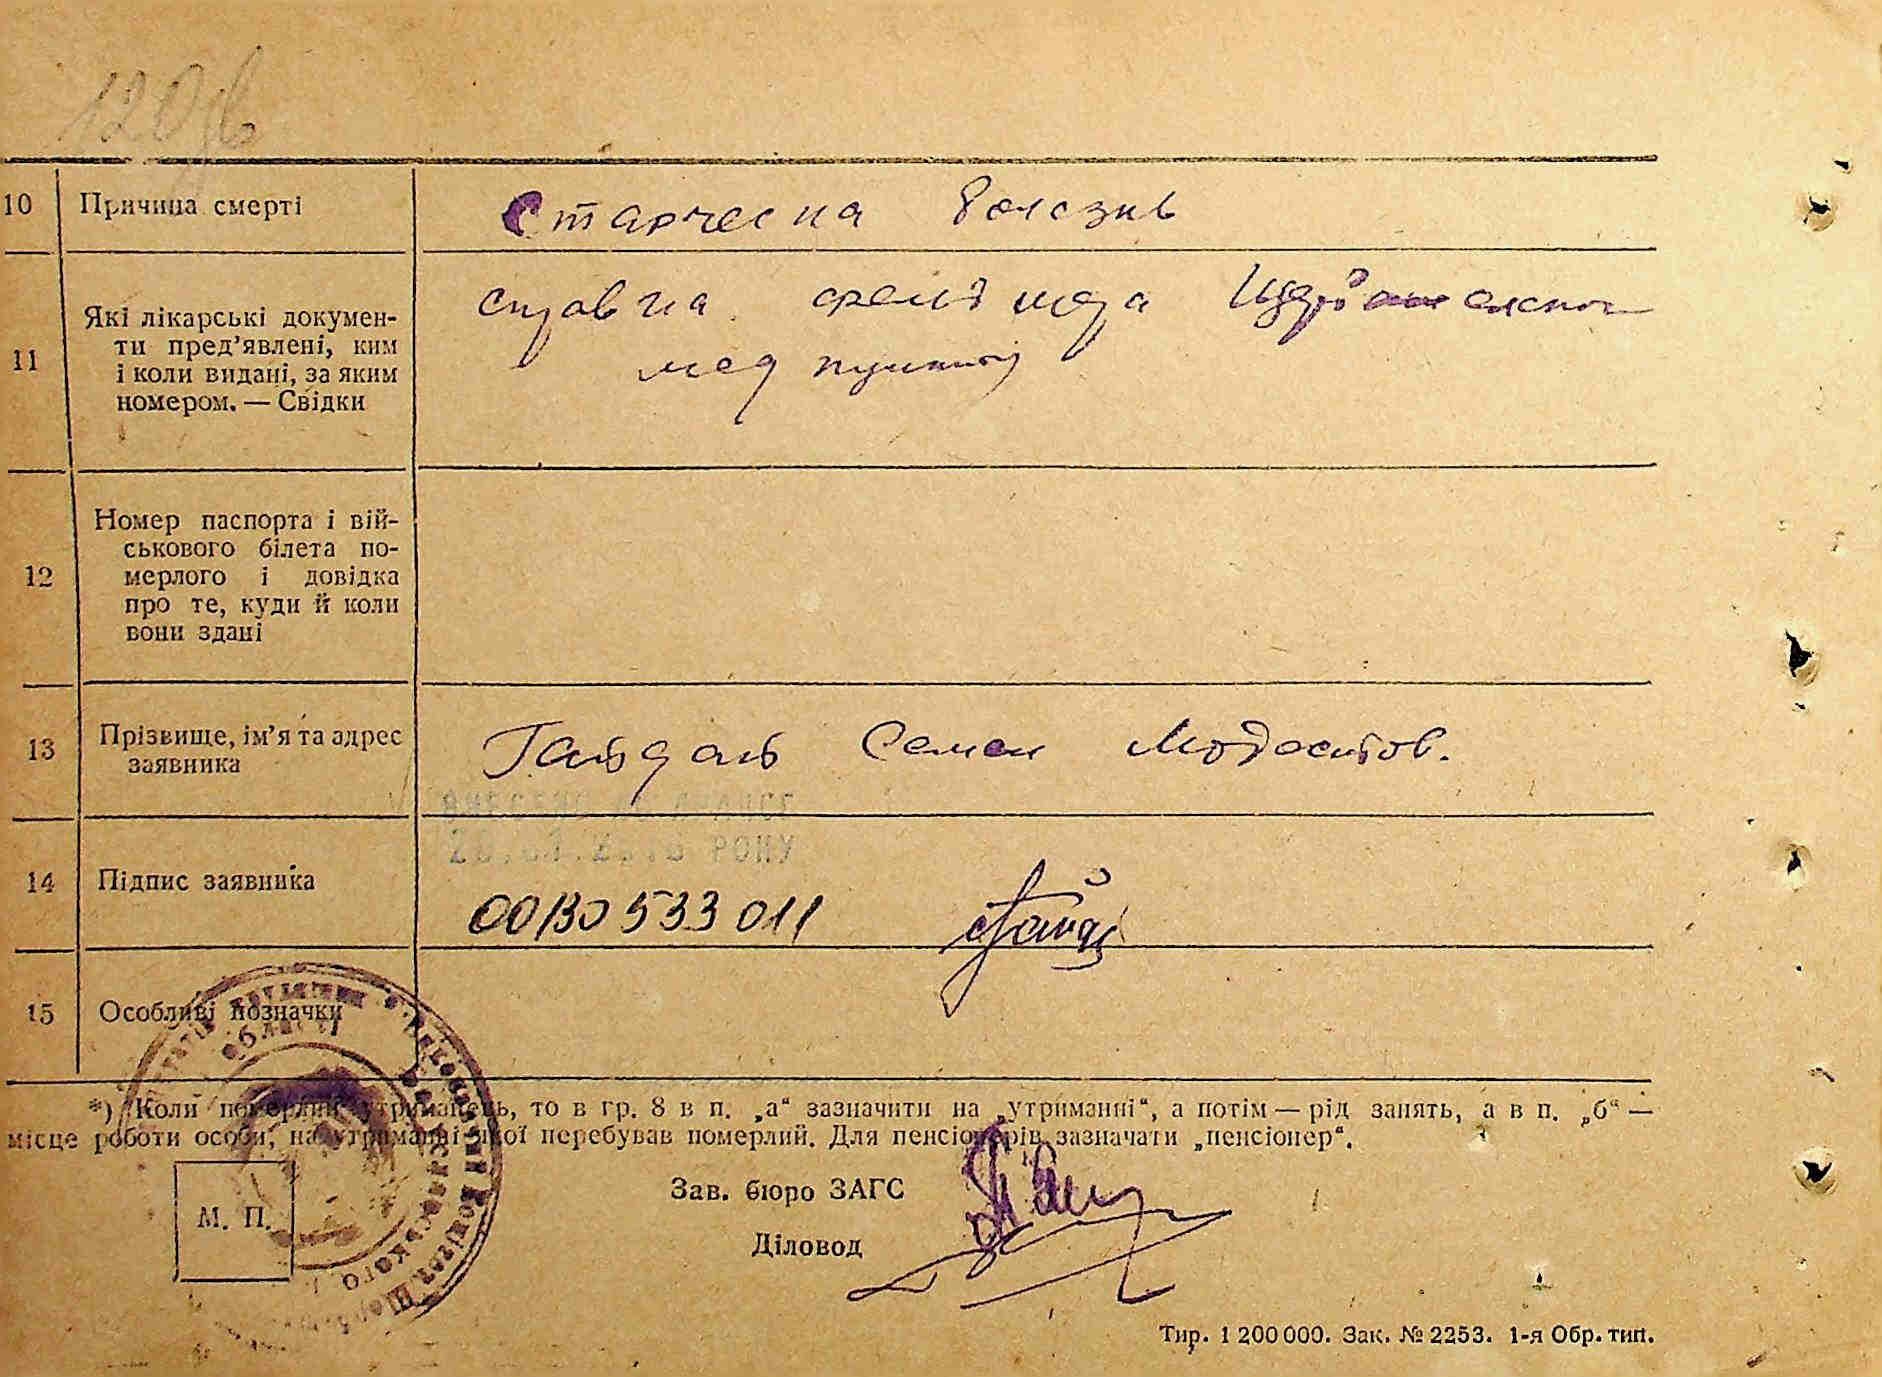 10 Причина смерті
Старческа болезнь
11 Які лікарські докумен-
ти пред’явлені, ким
і коли видані, за яким
номером. — Свідки
справка фельдшера
мед пункту
12 Номер паспорта і вій-
ськового білета по-
мерлого і довідка
про те, куди й коли
вони здані
13 Прізвище, ім’я та адрес
заявника
Семен Модестов.
РОКУ
14 Підпис заявника
00130533011
15 Особливі позначки
*) Коли померлий утриманець, то в гр. 8 в п. „а“ зазначити на „утриманні“, а потім — рід занять, а в п. „б“ —
місце роботи особи, на утриманні якої перебував померлий. Для пенсіонерів зазначати „пенсіонер“.
Зав. бюро ЗАГС
М. П.
Діловод
Тир. 1 200 000. Зак. № 2253. 1-я Обр. тип.